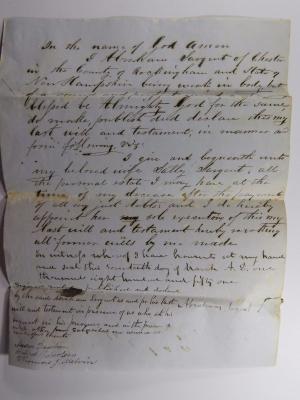 In the name of God Amen
I Abraham Sargent of Chester
in the County of Rockingham and State of
New Hampshire being weak in body but
Blessed be Almighty God for the same
do make, publish and declare this my
last will and testament, in manner and
form following viz
I give and bequeath unto
my beloved wife Sally Sargent, all
the personal estate I may have at the
time of my decease after the payment
of all my just debts and I do hereby
appoint her sole executrix of this my
last will and testament hereby revoking
all former wills by me made
In witness whereof I have hereunto set my hand
and seal this seventeenth day of March A.D. one
thousand eight hundred and fifty one
published and declared
by the said Abraham Sargent as and for his last
will and testament in presence of us who at his
request in his presence and in the presence